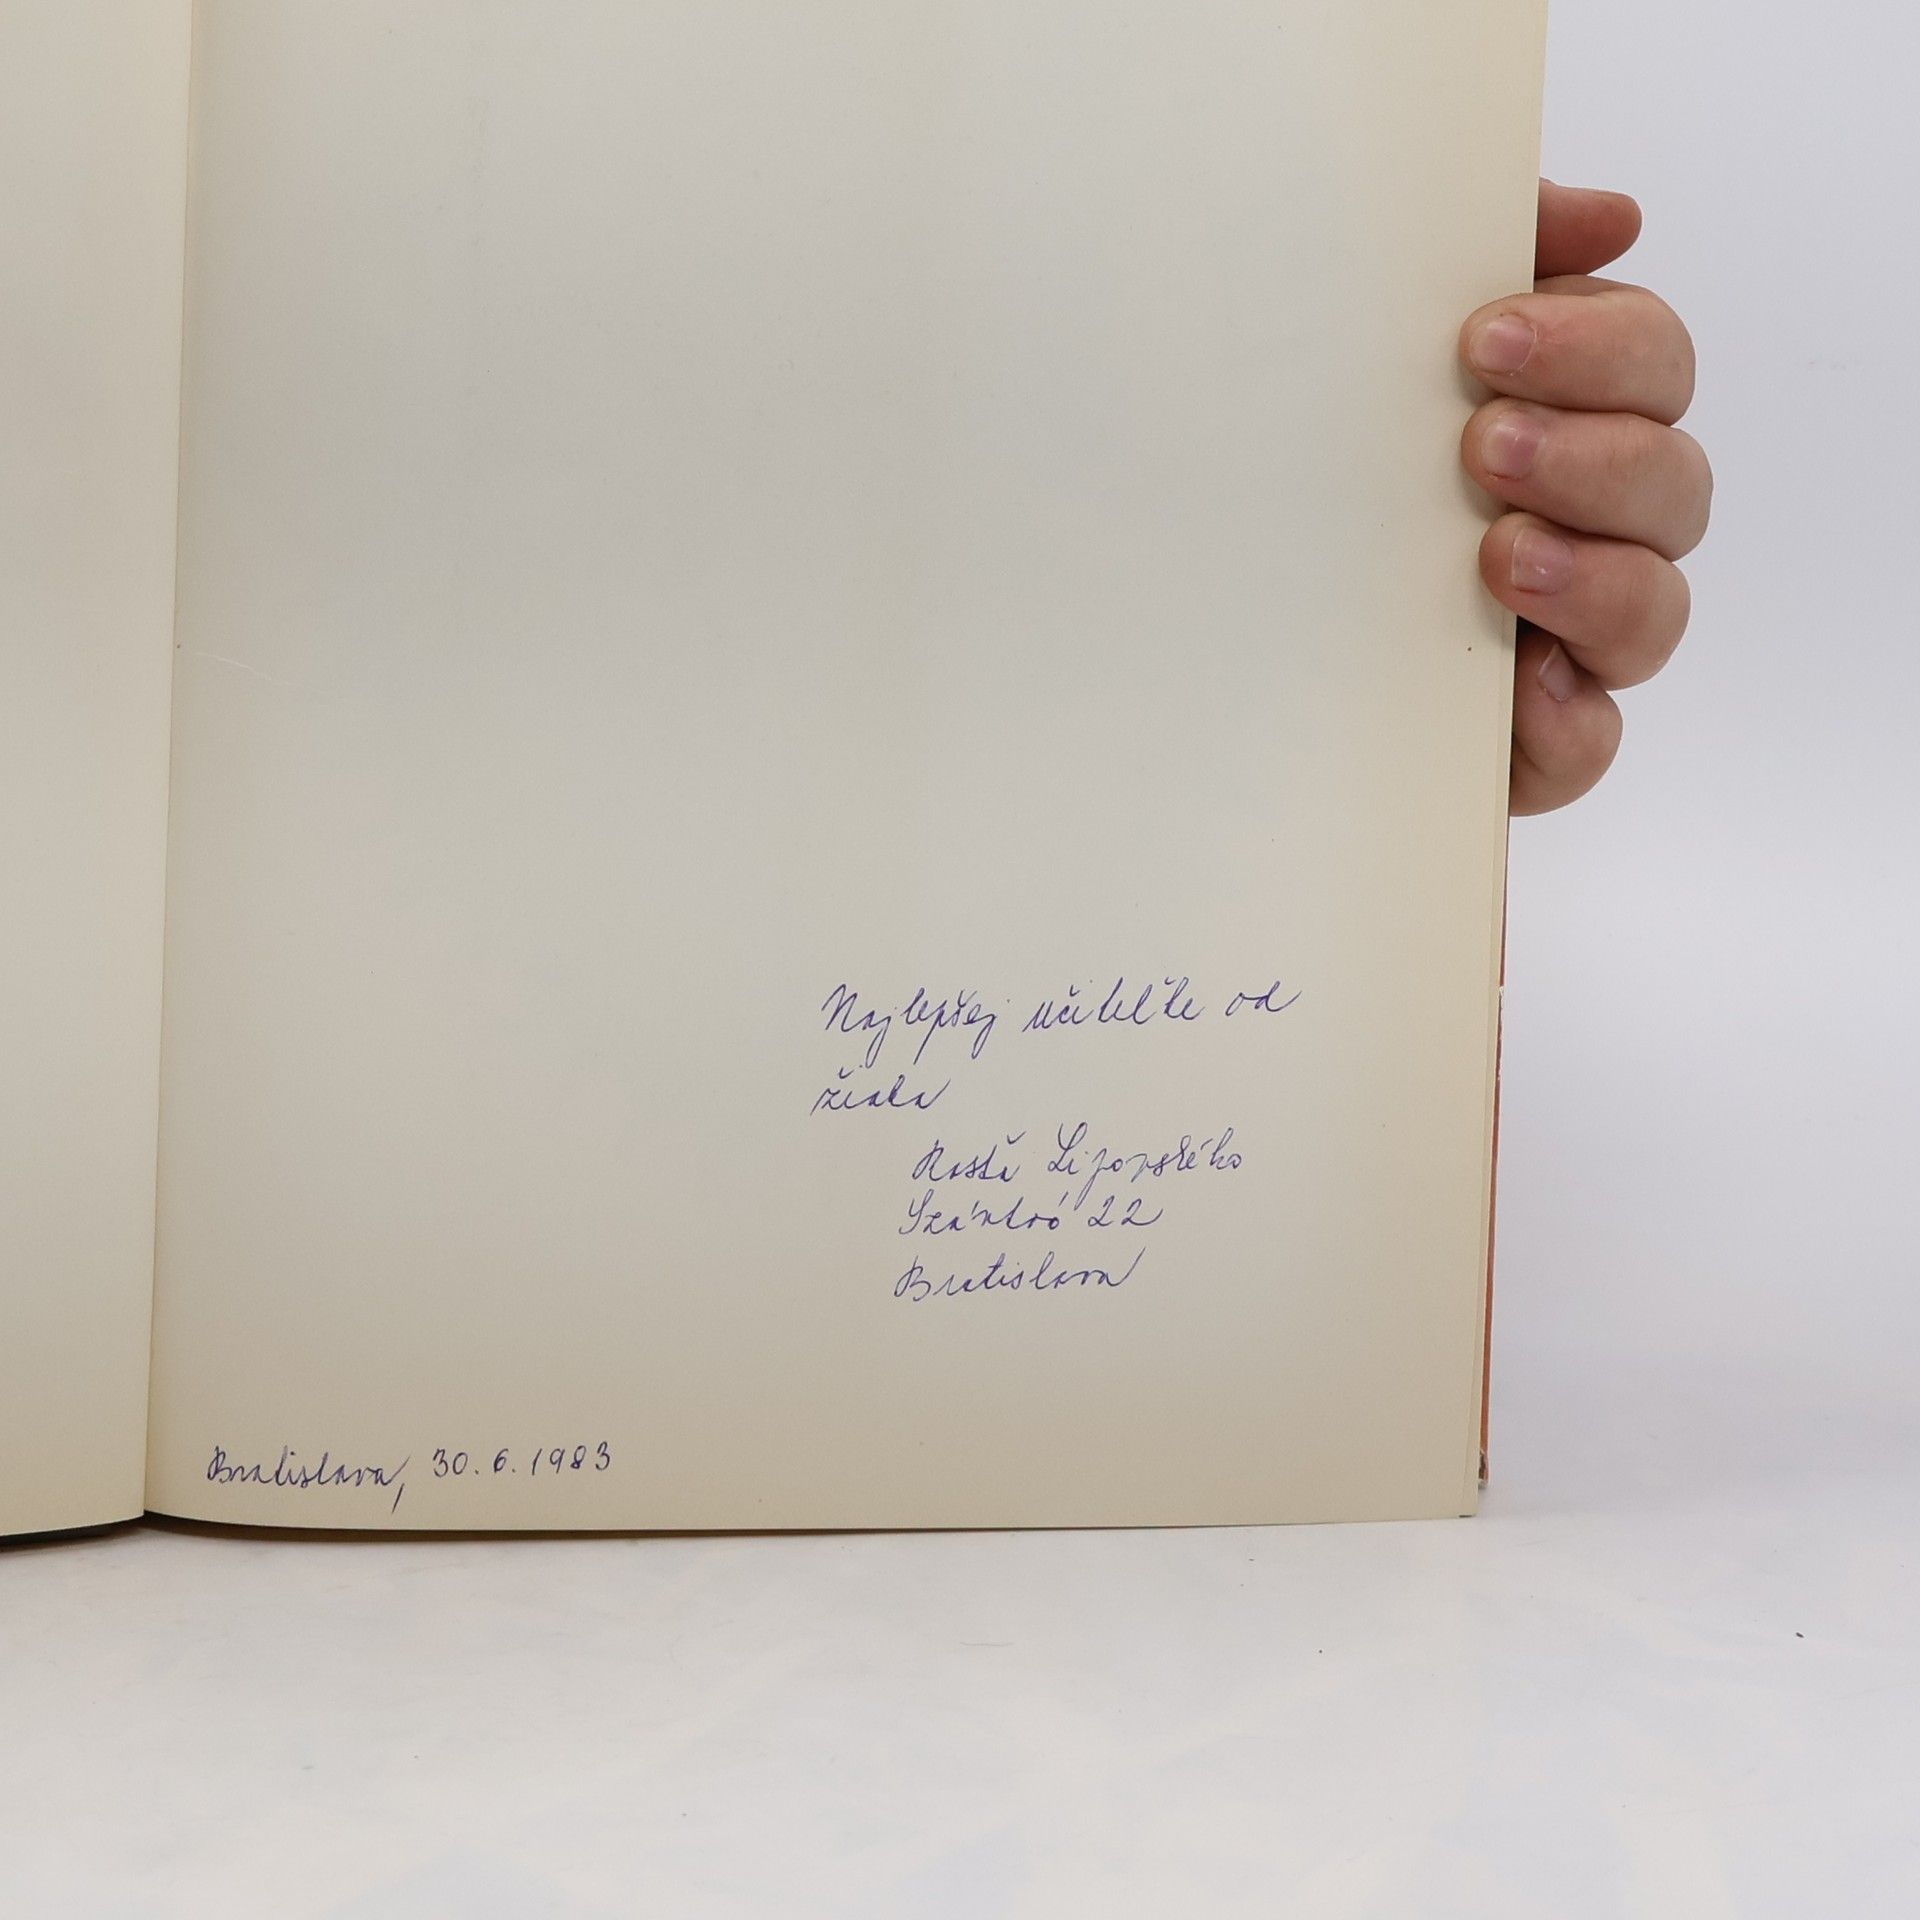 Najlepšej učiteľke od
žiaka
Rasťa Lipovského
Szántoó 22
Bratislava
Bratislava, 30.6.1983